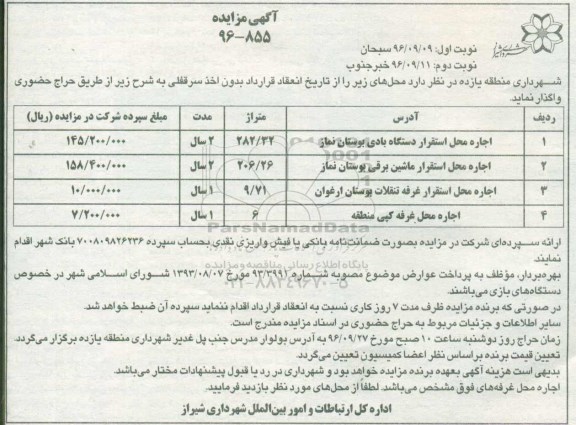 آگهی مزایده
۹۶-۸۵۵
نوبت اول: ۹۶/۰۹/۰۹ سبحان
نوبت دوم: ۹۶/۰۹/۱۱ خبرجنوب
شهرداری منطقه یازده در نظر دارد محل‌های زیر را از تاریخ انعقاد قرارداد بدون اخذ سرقفلی به شرح زیر از طریق حراج حضوری
واگذار نماید.
ردیف آدرس متراژ مدت مبلغ سپرده شرکت در مزایده (ریال)
۱ اجاره محل استقرار دستگاه بادی بوستان نماز ۲۸۲/۳۲ ۲ سال ۱۴۵/۲۰۰/۰۰۰
۲ اجاره محل استقرار ماشین برقی بوستان نماز ۲۰۶/۲۶ ۲ سال ۱۵۸/۴۰۰/۰۰۰
۳ اجاره محل استقرار غرفه تنقلات بوستان ارغوان ۹/۷۱ ۱ سال ۱۰/۰۰۰/۰۰۰
۴ اجاره محل غرفه کپی منطقه ۶ ۱ سال ۷/۲۰۰/۰۰۰
ParsNamadData
پایگاه اطلاع رسانی مناقصه و مزایده
۰۲۱-۸۸۳۴۹۶۷۰-۵
ارائه سپرده‌ای شرکت در مزایده بصورت ضمانت‌نامه بانکی یا فیش واریزی نقدی بحساب سپرده ۷۰۰۸۰۹۸۲۶۲۳۶ بانک شهر اقدام
نمایند
بهره‌بردار، مؤظف به پرداخت عوارض موضوع مصوبه شماره ۹۳/۳۹۹۱ مورخ ۱۳۹۳/۰۸/۰۷ شورای اسلامی شهر در خصوص
دستگاه‌های بازی می‌باشند.
در صورتی که برنده مزایده ظرف مدت ۷ روز کاری نسبت به انعقاد قرارداد اقدام ننماید سپرده آن ضبط خواهد شد.
سایر اطلاعات و جزئیات مربوط به حراج حضوری در اسناد مزایده مندرج است.
زمان حراج روز دوشنبه ساعت ۱۰ صبح مورخ ۹۶/۰۹/۲۷ به آدرس بولوار مدرس جنب پل غدیر شهرداری منطقه یازده برگزار می‌گردد.
تعیین قیمت برنده براساس نظر اعضا کمیسیون تعیین می‌گردد.
بدیهی است هزینه آگهی بعهده برنده مزایده خواهد بود و شهرداری در رد یا قبول پیشنهادات مختار می‌باشد.
اجاره محل غرفه‌های فوق مشخص می‌باشد. لطفاً از محل‌های مورد نظر بازدید فرمایید.
اداره کل ارتباطات و امور بین‌الملل شهرداری شیراز